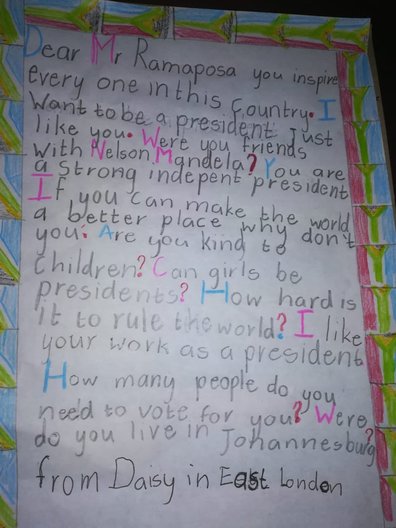 Dear Mr Ramaposa you inspire
every one in this country. I
Want to be a president Just
like you. Were you friends
with Nelson Mandela? You are
a strong indepent president
If you can make the world
a better place why don't
you. Are you kind to
Children? Can girls be
presidents? How hard is
it to rule the world? I like
your work as a president
How many people do you
need to vote for you? Were
do you live in Johannesburg?
from Daisy in East London